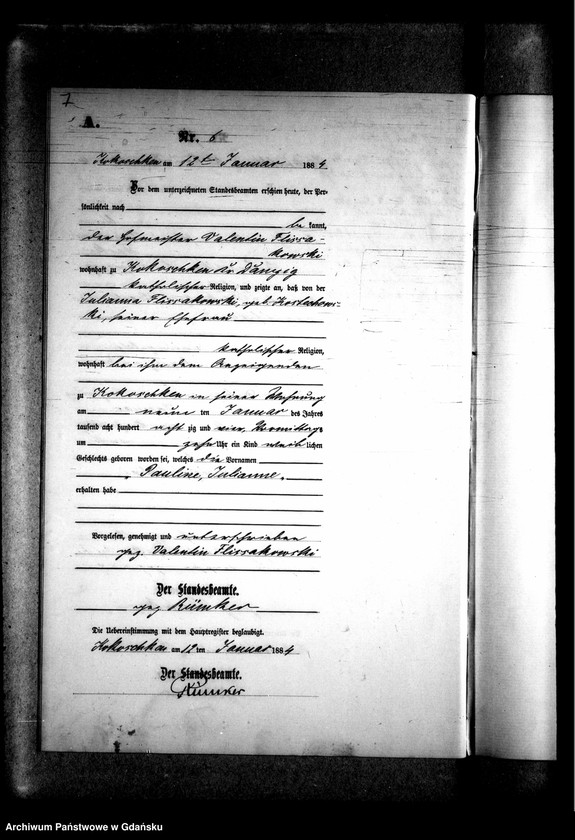 7
A.
Nr. 6
Kokoschken am 12ten Januar 1884
Vor dem unterzeichneten Standesbeamten erschien heute, der Per-
sönlichkeit nach
be kannt,
der Hofmeister Valentin Flissa-
kowski
wohnhaft zu Kokoschken Kr. Danzig
katholischer Religion, und zeigte an, daß von der
Julianna Flissakowski, geb.
ki, seiner Ehefrau
katholischer Religion,
wohnhaft bei ihm dem Anzeigenden
zu Kokoschken in seiner Wohnung
am neun ten Januar des Jahres
tausend acht hundert acht zig und vier, Vormittags
um zehn Uhr ein Kind weib lichen
Geschlechts geboren worden sei, welches die Vornamen
Pauline, Julianne
erhalten habe
Vorgelesen, genehmigt und unterschrieben
gez. Valentin Flissakowski
Der Standesbeamte.
gez Rümker
Die Uebereinstimmung mit dem Hauptregister beglaubigt.
Kokoschken am 12 ten Januar 1884
Der Standesbeamte.
Rümker
Archiwum Państwowe w Gdańsku